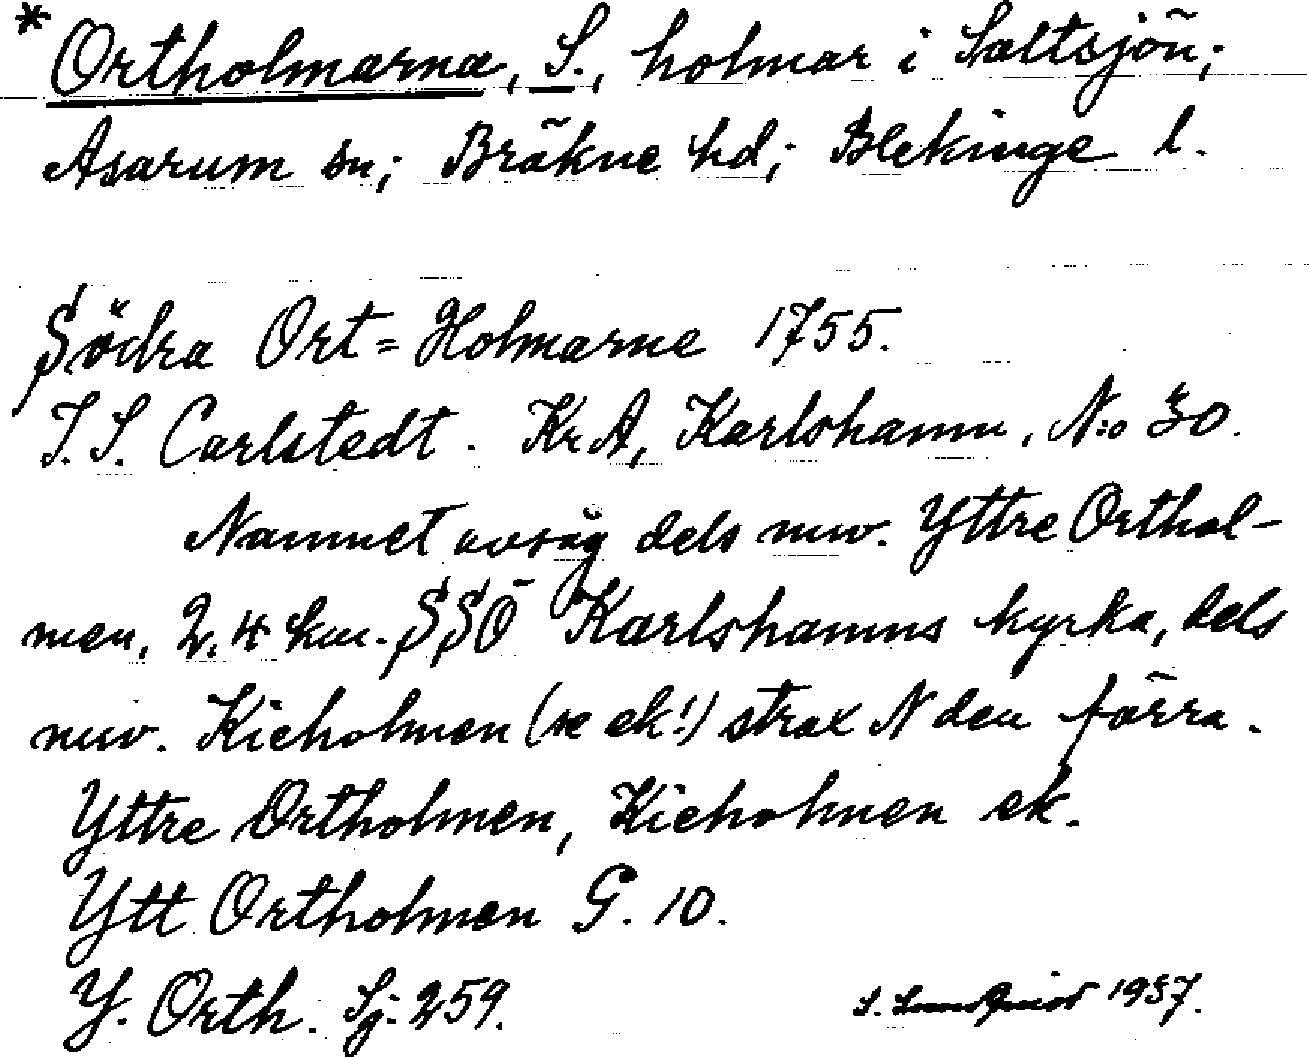 * Ortholmarna, S., holmar i Saltsjön;
Asarum sn; Bräkne hd; Blekinge l.
Södra Ort=Holmarne 1755.
J. S. Carlstedt. KrA, Karlshamn, N:o 30.
Namnet avsåg dels nuv. Yttre Orthol-
men, 2.4 km. SSÖ Karlshamns kyrka, dels
nuv. Kieholmen (se ek!) strax N den förra.
Yttre Ortholmen, Kieholmen ek.
Ytt Ortholmen G. 10.
Y. Orth. Sj: 259.
S. 1937.